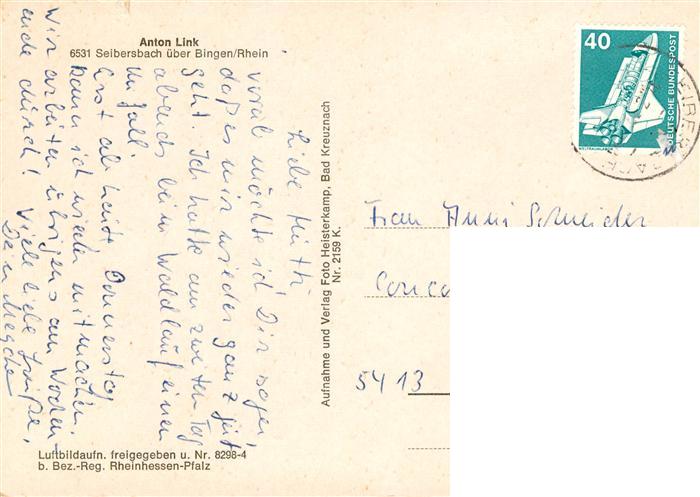 Anton Link
6531 Seibersbach über Bingen/Rhein
Liebe Mutti,
vorab möchte ich Dir sagen,
daß es mir wieder ganz gut
geht. Ich hatte am zweiten Tag
abends beim Waldlauf einen
Unfall.
Erst ab heute, Donnerstag
kann ich wieder mitmachen.
Wir arbeiten übrigens am Wochen-
ende durch! Viele liebe Grüße,
Dein
Luftbildaufn. freigegeben u. Nr. 8298-4
b. Bez.-Reg. Rheinhessen-Pfalz
Aufnahme und Verlag Foto Heisterkamp, Bad Kreuznach
Nr. 2159 K.
40
DEUTSCHE BUNDESPOST
WELTRAUMLABOR
Frau Anni Schneider
5413